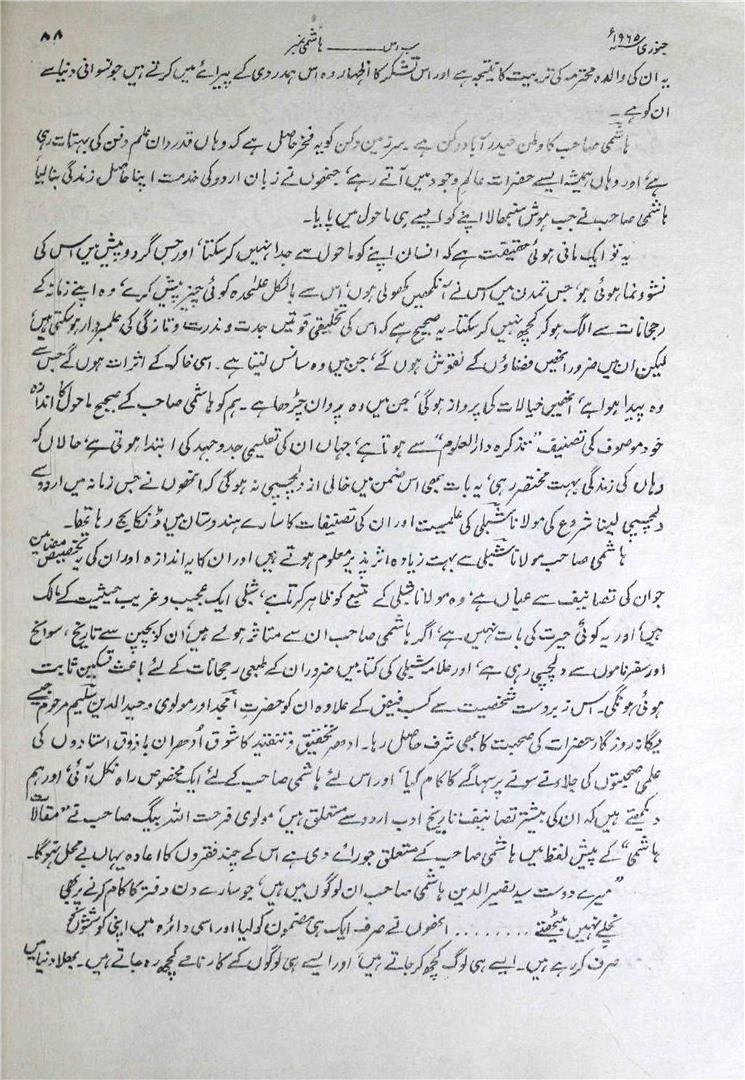 جنوری ۱۹۶۵ء سب رس ہاشمی نمبر ۸۸
یہ ان کی والدہ محترمہ کی تربیت کا نتیجہ ہے اور اس تشکر کا اظہار وہ اس ہمدردی کے پیرائے میں کرتے ہیں جو نسوانی دنیا سے
ان کو ہے۔
ہاشمی صاحب کا وطن حیدرآباد دکن ہے۔ سرزمین دکن کو یہ فخر حاصل ہے کہ وہاں قدردان علم و فن کی بہتات رہی
ہے، اور وہاں ہمیشہ ایسے حضرات عالم وجود میں آتے رہے، جنھوں نے زبان اردو کی خدمت اپنا حاصل زندگی بنالیا،
ہاشمی صاحب نے جب ہوش سنبھالا اپنے کو ایسے ہی ماحول میں پایا۔
یہ تو ایک مانی ہوئی حقیقت ہے کہ انسان اپنے کو ماحول سے جدا نہیں کر سکتا، اور جس گرد و پیش میں اس کی
نشو و نما ہوئی ہو، جس تمدن میں اس نے آنکھیں کھولی ہوں، اس سے بالکل علٰحدہ کوئی چیز پیش کرے، وہ اپنے زمانہ کے
رجحانات سے الگ ہو کر کچھ نہیں کر سکتا۔ یہ صحیح ہے کہ اس کی تخلیقی قوتیں جدت و ندرت و تازگی کی علمبردار ہو سکتی ہیں،
لیکن ان میں ضرور انھیں فضاؤں کے نقوش ہوں گے، جن میں وہ سانس لیتا ہے۔ اسی خاک کے اثرات ہوں گے جس سے
وہ پیدا ہوا ہے، انھیں خیالات کی پرواز ہوگی، جن میں وہ پروان چڑھا ہے۔ ہم کو ہاشمی صاحب کے صحیح ماحول کا اندازہ
خود موصوف کی تصنیف "تذکرہ دارالعلوم" سے ہوتا ہے، جہاں ان کی تعلیمی جدوجہد کی ابتدا ہوتی ہے، حالاں کہ
وہاں کی زندگی بہت مختصر رہی، یہ بات بھی اس ضمن میں خالی از دلچسپی نہ ہوگی کہ انھوں نے جس زمانہ میں اردو سے
دلچسپی لینا شروع کی مولانا شبلی کی علمیت اور ان کی تصنیفات کا سارے ہندوستان میں ڈنکا بج رہا تھا۔
ہاشمی صاحب مولانا شبلی سے بہت زیادہ اثر پذیر معلوم ہوتے ہیں اور ان کا یہ اندازہ اور ان کی یہ تخصیص مضامین
جو ان کی تصانیف سے عیاں ہے، وہ مولانا شبلی کے تتبع کو ظاہر کرتا ہے، شبلی ایک عجیب و غریب حیثیت کے مالک
ہیں، اور یہ کوئی حیرت کی بات نہیں ہے، اگر ہاشمی صاحب ان سے متاثر ہوئے ہیں، ان کو بچپن سے تاریخ، سوانح
اور سفرناموں سے دلچسپی رہی ہے، اور علامہ شبلی کی کتابیں ضرور ان کے طبعی رجحانات کے لئے باعث تسکین ثابت
ہوئی ہونگی۔ اس زبردست شخصیت سے کسب فیض کے علاوہ ان کو حضرت امجد اور مولوی وحید الدین سلیم مرحوم جیسے
یگانہ روزگار حضرات کی صحبت کا بھی شرف حاصل رہا۔ ادھر تحقیق و تنقید کا شوق اُدھر ان باذوق استادوں کی
علمی صحبتوں کی جلا نے سونے پر سہاگے کا کام کیا، اور اس لئے ہاشمی صاحب کے لئے ایک مخصوص راہ نکل آئی، اور ہم
دیکھتے ہیں کہ ان کی بیشتر تصانیف تاریخ ادب اردو سے متعلق ہیں، مولوی فرحت اللہ بیگ صاحب نے "مقالات
ہاشمی" کے پیش لفظ میں ہاشمی صاحب کے متعلق جو رائے دی ہے اس کے چند فقروں کا اعادہ یہاں بے محل نہ ہوگا۔
"میرے دوست سید نصیر الدین ہاشمی صاحب ان لوگوں میں ہیں، جو سارے دن دفتر کا کام کرنے پر بھی
نچلے نہیں بیٹھتے ........ انھوں نے صرف ایک ہی مضمون کو لیا اور اسی دائرہ میں اپنی کوششوں کو
صرف کر رہے ہیں۔ ایسے ہی لوگ کچھ کر جاتے ہیں، اور ایسے ہی لوگوں کے کارنامے کچھ رہ جاتے ہیں۔ بھلا دنیا میں